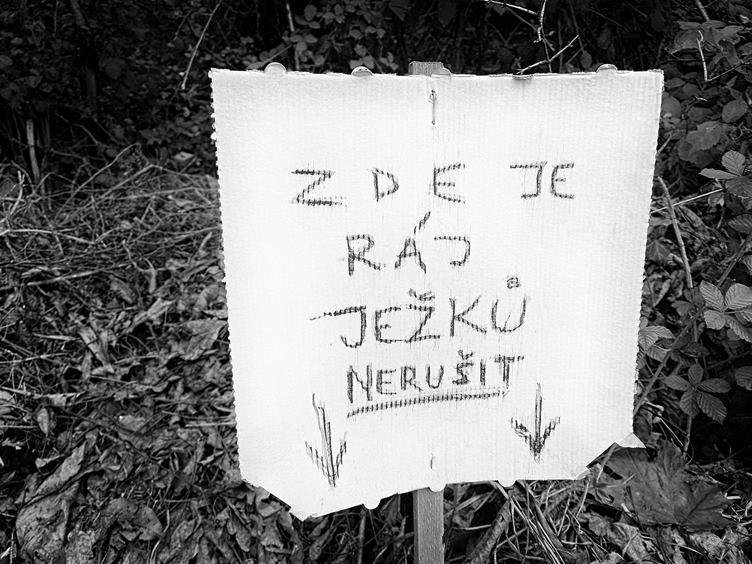 ZDE JE
RÁJ
JEŽKŮ
NERUŠIT